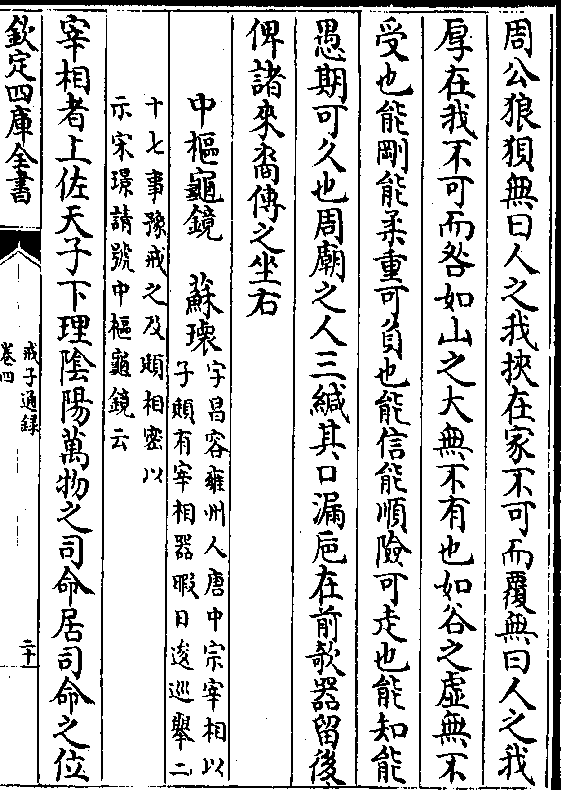 周公狼狽無曰人之我挾在家不可而覆無曰人之我
厚在我不可而咎如山之大無不有也如谷之虛無不
受也能剛能柔重可負也能信能順險可走也能知能
愚期可久也周廟之人三緘其口漏巵在前欹器留後
俾諸來裔傳之坐右
中樞龜鏡　蘇瓌
字昌容雍州人唐中宗宰相以
子頲有宰相器暇日逡巡舉二
十七事豫戒之及頲相密以
示宋璟請號中樞龜鏡云
宰相者上佐天子下理陰陽萬物之司命居司命之位
欽定四庫全書
戒子通錄
卷四
二十